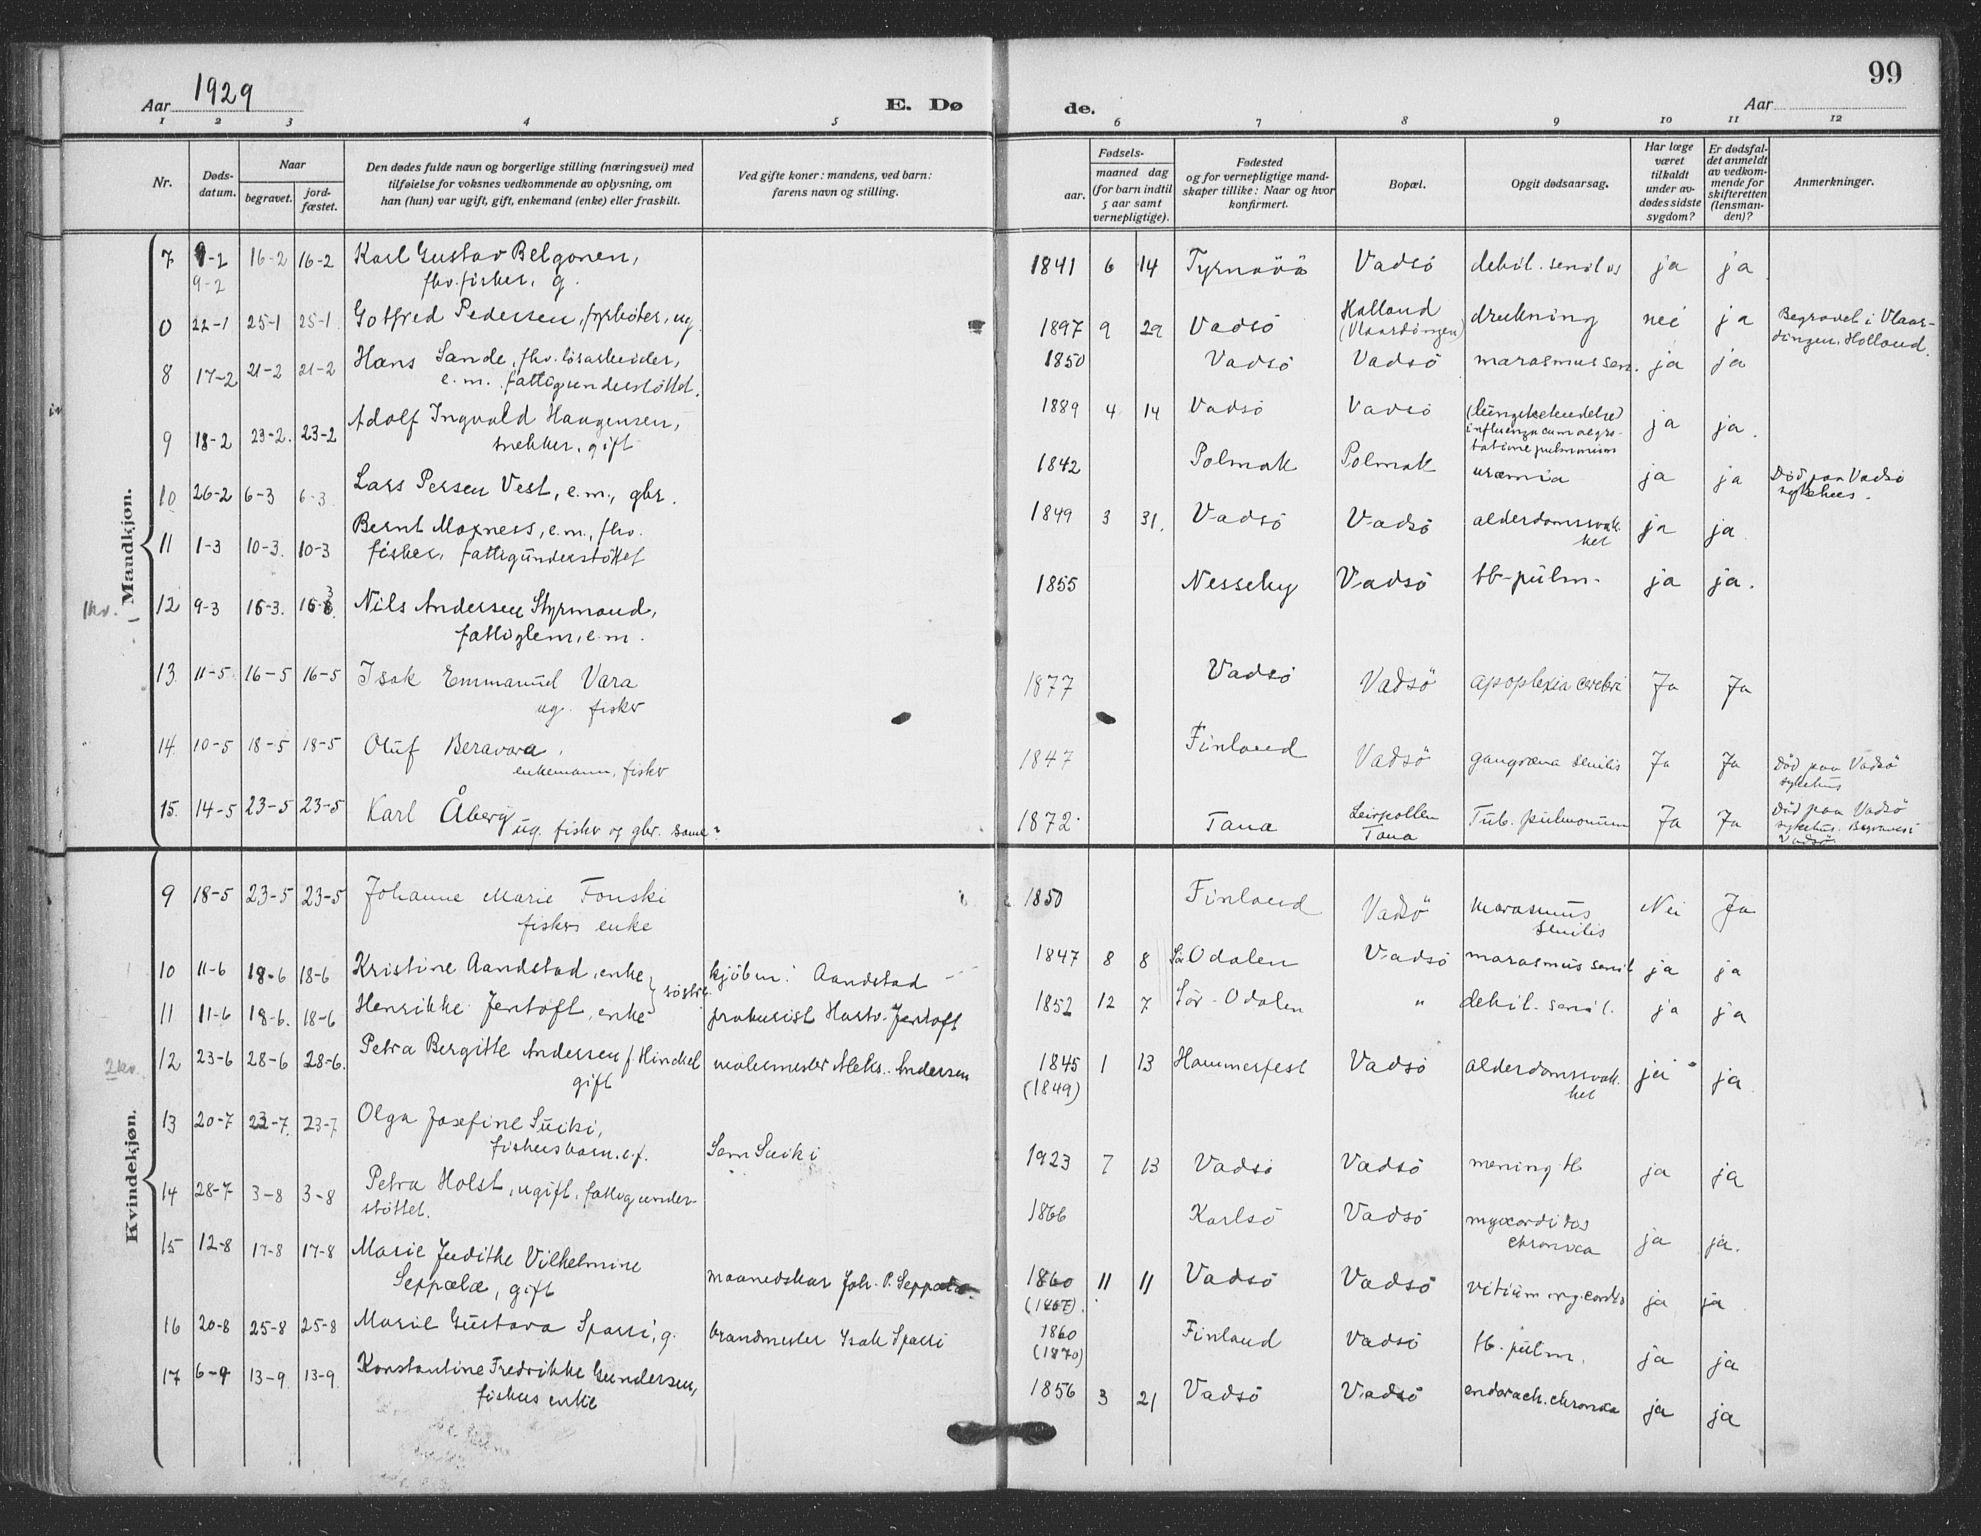 99
Aar 1929
E. Dø
de.
Aar
1 2 3 4 5 6 7 8 9 10 11 12
Nr.
Døds-
datum.
Naar
begravet.
jord-
fæstet.
Den dødes fulde navn og borgerlige stilling (næringsvei) med
tilføielse for voksnes vedkommende av oplysning, om
han (hun) var ugift, gift, enkemand (enke) eller fraskilt.
Ved gifte koner: mandens, ved barn:
farens navn og stilling.
Fødsels-
aar. maaned dag
(for barn indtil
5 aar samt
vernepligtige).
Fødested
og for vernepligtige mand-
skaper tillike: Naar og hvor
konfirmert.
Bopæl.
Opgit dødsaarsag.
Har læge
været
tilkaldt
under av-
dødes sidste
sygdom?
Er dødsfal-
det anmeldt
av vedkom-
mende for
skifteretten
(lensman-
den)?
Anmerkninger.
Mandkjøn.
7 9-2 16-2 16-2 Karl Gustav Belgonen, 1841 6 14 Tyrnävä Vadsö debil. senilis ja ja
9-2 fhv. fisker, g.
0 22-1 25-1 25-1 Gotfred Pedersen, fyrböter, ug. 1897 9 29 Vadsö Holland drukning nei ja Begravet i Vlaar-
(Vlaardingen) dingen, Holland.
8 17-2 21-2 21-2 Hans Sande, fhv. lösarbeider, 1850 Vadsö Vadsö marasmus sen. ja ja
e.m. fattigunderstöttet.
9 18-2 23-2. 23-2 Adolf Ingvald Haagensen, 1889 4 14 Vadsö Vadsö (lungebetendelse) ja ja.
snekker, gift influenza cum aegro-
tatione pulmonium
10 26-2 6-3 6-3 Lars Persen Vest, e.m., gbr. 1842 Polmak Polmak uræmia ja ja Död paa Vadsö
sykehus.
11 1-3 10-3. 10-3 Bernt Moxness, e.m., fhv. 1849 3 31. Vadsö Vadsö alderdomssvak- ja ja
fisker, fattigunderstöttet het
1kv. 12 9-3 16-3. 16-3 Nils Andersen Styrmand, 1855 Nesseby Vadsö tb-pulm. ja ja.
fattiglem, e.m.
13. 11-5 16-5 16-5 Isak Emmanuel Vara 1877 Vadsö Vadsö apoplexia cerebri Ja Ja
ug. fisker
14. 10-5 18-5 18-5 Oluf Beravara, 1847 Finland Vadsö gangræna senilis Ja Ja Död paa Vadsö
enkemann, fisker sykehus
15. 14-5 23-5 23-5 Karl Åberg 1872 Tana Leirpollen Tub. pulmonum Ja Ja Död paa Vadsö
ug. fisker og gbr. same? Tana sykehus. Begravet i
Vadsö
Kvindekjøn.
9 18-5 23-5 23-5 Johanne Marie Fonski 1850 Finland Vadsö marasmus Nei Ja
fiskers enke senilis
10 11-6 18-6 18-6 Kristine Aandstad, enke kjöbm. Aandstad 1847 8 8 Sör Odalen Vadsö marasmus senil ja ja
söstre
11 11-6 18-6. 18-6 Henrikke Jentoft, enke prokurist Hartv. Jentoft 1852 12 7 Sör-Odalen " debil. senil. ja ja
2kv. 12 23-6 28-6 28-6. Petra Bergitte Andersen f. Hinckel malermester Aleks. Andersen 1845 1 13 Hammerfest Vadsö alderdomssvak- ja ja
gift (1849) het
13 20-7 23-7. 23-7 Olga Josefine Suiki,
fiskersbarn, e.f. Sam Suiki 1923 7 13 Vadsö Vadsö mening tb ja ja
14 28-7 3-8 3-8 Petra Holst, ugift, fattigunder- 1866 Karlsö Vadsö myocarditis
stöttet. chronica ja ja.
15 12-8 17-8 17-8 Marie Judithe Vilhelmine
Seppälä, gift maanedskar Joh. P. Seppälä 1860 11 11 Vadsö Vadsö vitium myocordis ja ja
(1867).
16 20-8 25-8 25-8 Marie Gustava Sparri, g. brandmester Isak Sparri 1860 Finland Vadsö tb. pulm. ja ja
(1870)
17 6-9 13-9 13-9 Konstantine Fredrikke Gundersen, 1856 3 21 Vadsö Vadsö endocach. chronica ja ja
fiskers enke